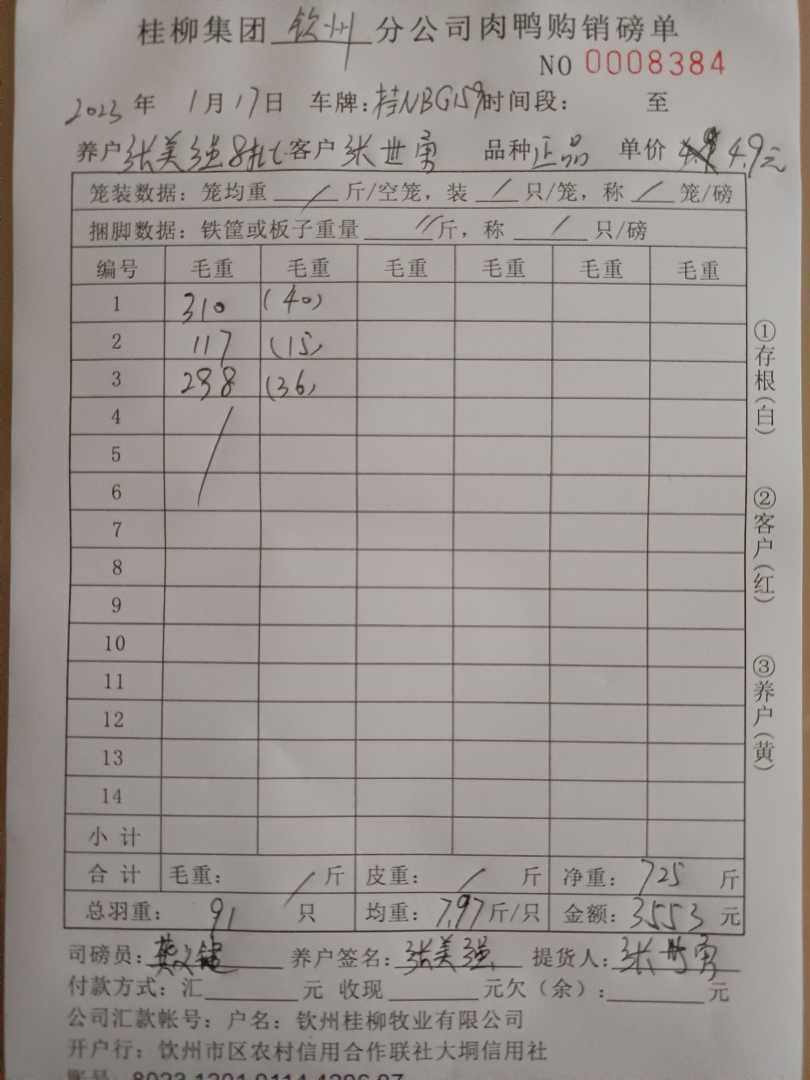 桂柳集团 钦州 分公司肉鸭购销磅单
NO 0008384
2023 年 1月17日 车牌:桂NBG159 时间段: 至
养户 张美强8批七 客户 张世勇 品种 正品 单价 4.9元
笼装数据: 笼均重 / 斤/空笼, 装 / 只/笼, 称 / 笼/磅
捆脚数据: 铁筐或板子重量 // 斤, 称 / 只/磅
编号 毛重 毛重 毛重 毛重 毛重 毛重
1 310 (40)
2 117 (15)
3 298 (36)
4
5
6
7
8
9
10
11
12
13
14
小 计
合 计 毛重: / 斤 皮重: / 斤 净重: 725 斤
总羽重: 91 只 均重: 7.97 斤/只 金额: 3553 元
司磅员: 养户签名: 张美强 提货人: 张世勇
付款方式: 汇 元 收现 元欠(余): 元
公司汇款帐号: 户名: 钦州桂柳牧业有限公司
开户行: 钦州市区农村信用合作联社大垌信用社
①存根(白)
②客户(红)
③养户(黄)